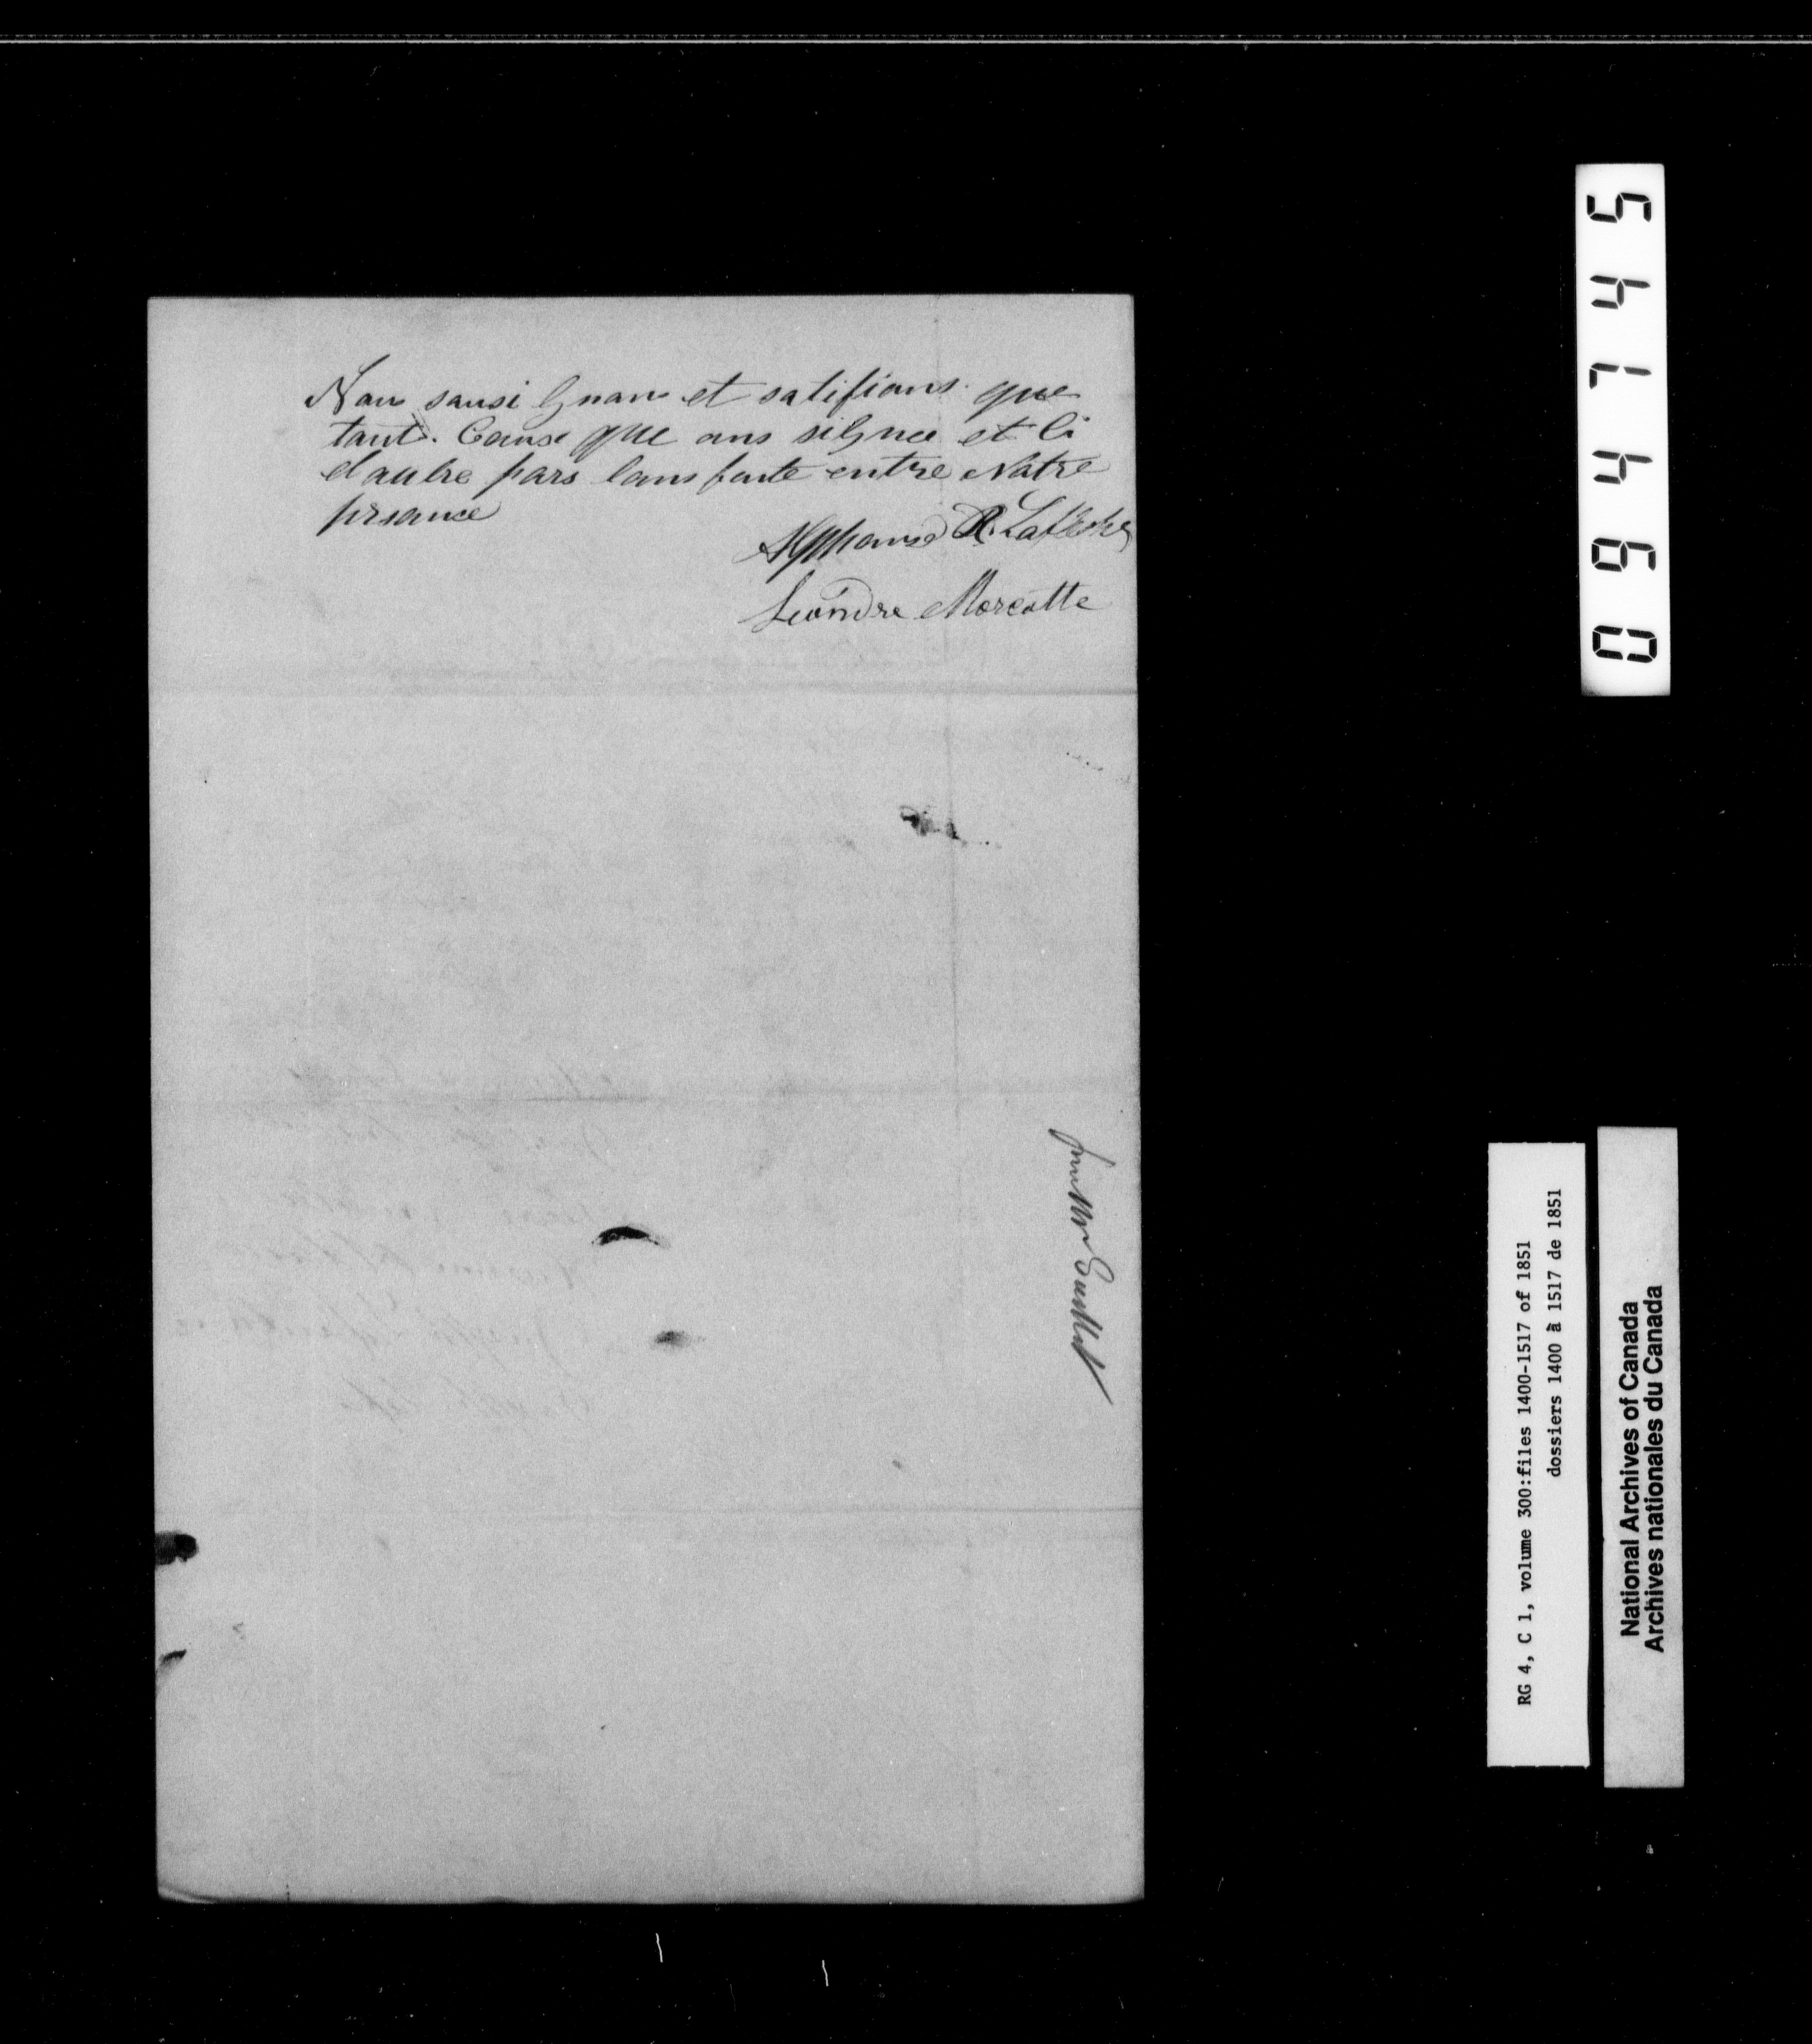 Nous sousi Gnans et satifions que
tout. Ceuse que ons silgnee et li
dautre pars lons faite entre Notre
prsance
Alphonse R. Laflèche
Leandre Marcotte
pour Mr Guillet
094745
RG 4, C 1, volume 300:files 1400-1517 of 1851
dossiers 1400 à 1517 de 1851
National Archives of Canada
Archives nationales du Canada